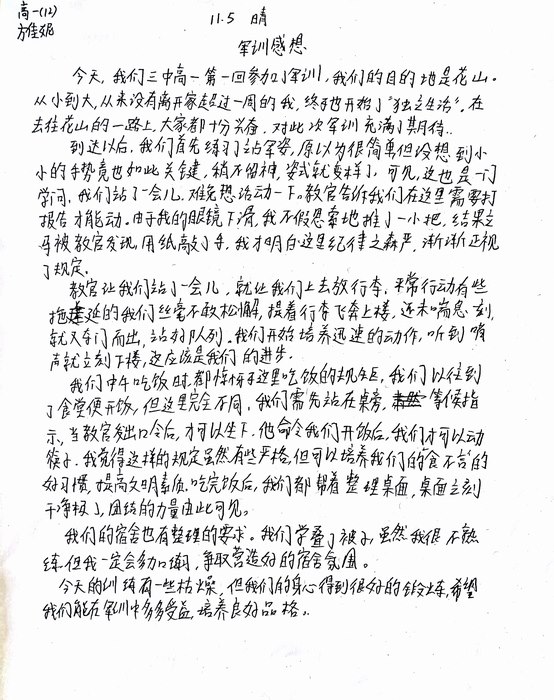 高一(12)
方佳妮
11.5 晴
军训感想
今天，我们三中高一第一回参加了军训，我们的目的地是花山。
从小到大，从来没有离开家超过一周的我，终于也开始了"独立生活"。在
去往花山的一路上，大家都十分兴奋，对此次军训充满了期待。
到达以后，我们首先练习了站军姿，原以为很简单但没想到小
小的手势竟也如此关键，稍不留神，姿式就变样了。可见，这也是一门
学问。我们站了一会儿，难免想活动一下。教官告诉我们在这里需要打
报告才能动。由于我的眼镜下滑，我不假思索地推了一小把，结果立
马被教官发现，用纸敲了手，我才明白这里纪律之森严，渐渐正视
了规定。
教官让我们站了一会儿，就让我们上去放行李。平常行动有些
拖延的我们丝毫不敢松懈，提着行李飞奔上楼，还未喘息一刻，
就又夺门而出，站好队列。我们开始培养迅速的动作，听到哨
声就立刻下楼，这应该是我们的进步。
我们中午吃饭时，都惊讶于这里吃饭的规矩，我们以往到
了食堂便开饭，但这里完全不同。我们需先站在桌旁，等候指
示，当教官发出口令后，才可以坐下。他命令我们开饭后，我们才可以动
筷子。我觉得这样的规定虽然有些严格，但可以培养我们的"食不言"的
好习惯，提高文明素质。吃完饭后，我们都帮着整理桌面，桌面立刻
干净极了，团结的力量由此可见。
我们的宿舍也有整理的要求。我们学叠了被子，虽然我很不熟
练，但我一定会多加练习，争取营造好的宿舍氛围。
今天的训练有一些枯燥，但我们的身心得到很好的锻炼，希望
我们能在军训中多多受益，培养良好品格。